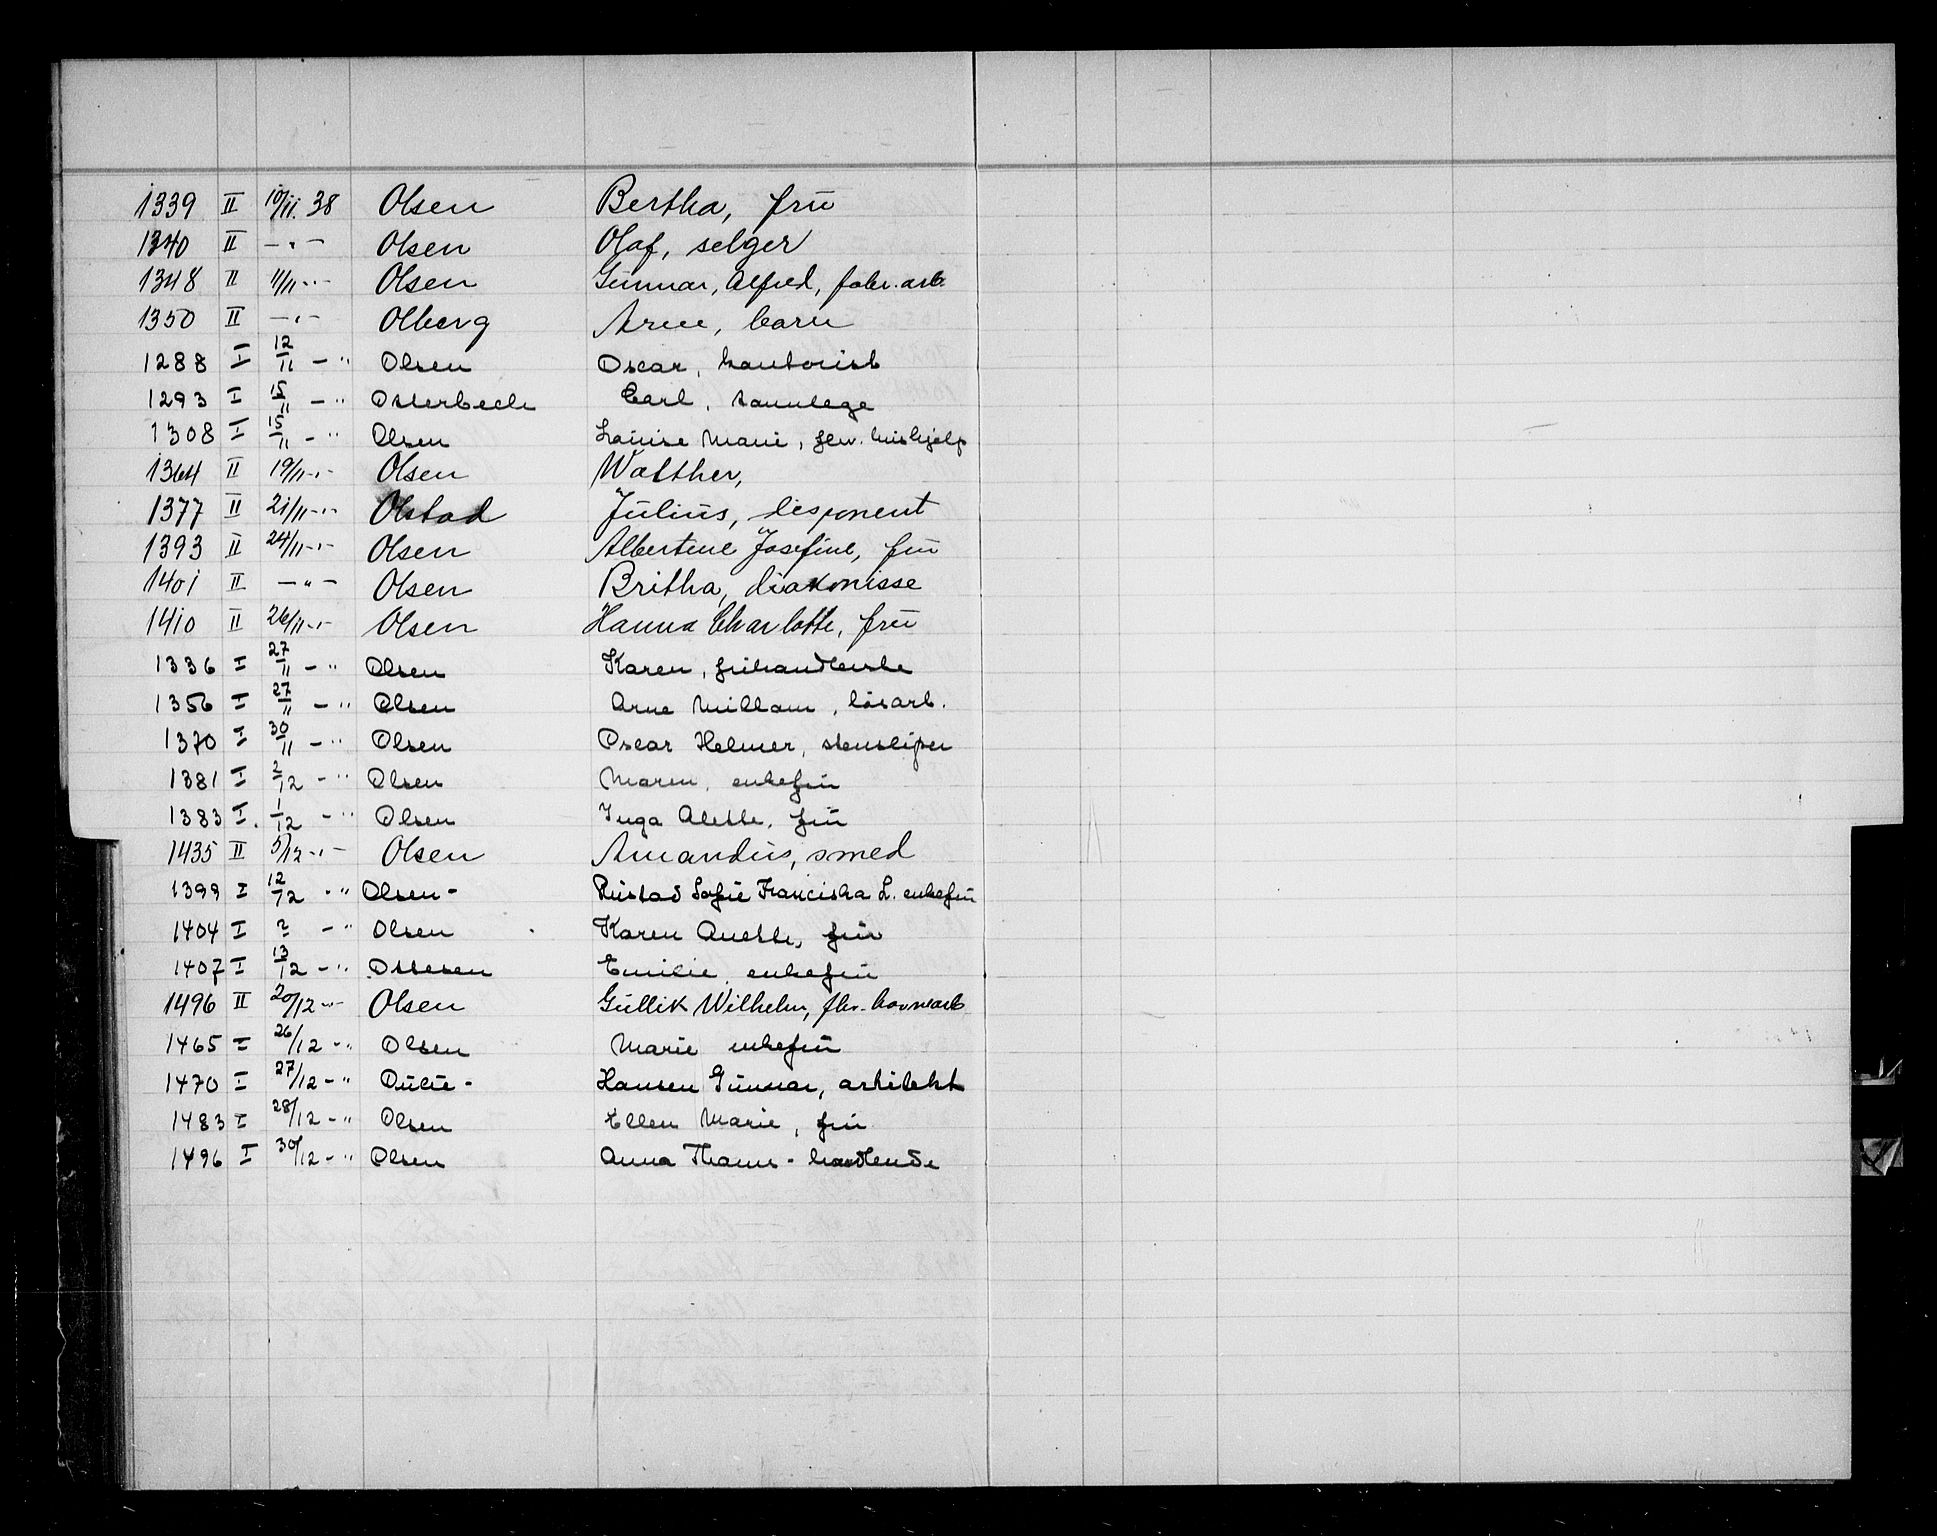 1339 II 10/11. 38 Olsen Bertha, frü
1340 II -"- Olsen Olaf, selger
1348 II 11/11 -"- Olsen Günnar, Alfred, fabr. arb.
1350 II -"- Olberg Arne, barn
1288 I 12/11 -" Olsen Oscar, kontorist
1293 I 15/11 -" Osterbeck Carl, tannlege
1308 I 15/11 -" Olsen Loüise Marie, fhv. hüshjelp
1364 II 19/11 -"- Olsen Walther,
1377 II 21/11 -"- Olstad Jüliüs, disponent
1393 II 24/11 -"- Olsen Albertine Josefine, frü
1401 II -"- Olsen Britha, diakonisse
1410 II 26/11 -"- Olsen Hanna Charlotte, frü
1336 I 27/11 -" Olsen Karen, frühandlerske
1356 I 27/11 -" Olsen Arne William, løsarb.
1370 I 30/11 -" Olsen Oscar Helmer, stensliper
1381 I 2/12 -" Olsen Maren, enkefrü
1383 I. 1/12 -" Olsen Inga Alette, frü
1435 II 5/12 -"- Olsen Amandüs, smed
1399 I 12/12 -" Olsen- Rüstad Sofie Franciska L. enkefrü
1404 I ? -" Olsen Karen Anette, frü
1407 I 13/12 -" Ottesen Emilie enkefrü
1496 II 20/12 -"- Olsen Güllik Wilhelm, fhv. havnearb
1465 I 26/12 -" Olsen Marie enkefrü
1470 I 27/12 -" Hansen Günnar, arkitekt
1483 I 28/12 -" Olsen Ellen Marie, frü
1496 I 30/12 -" Olsen Anna - handlende